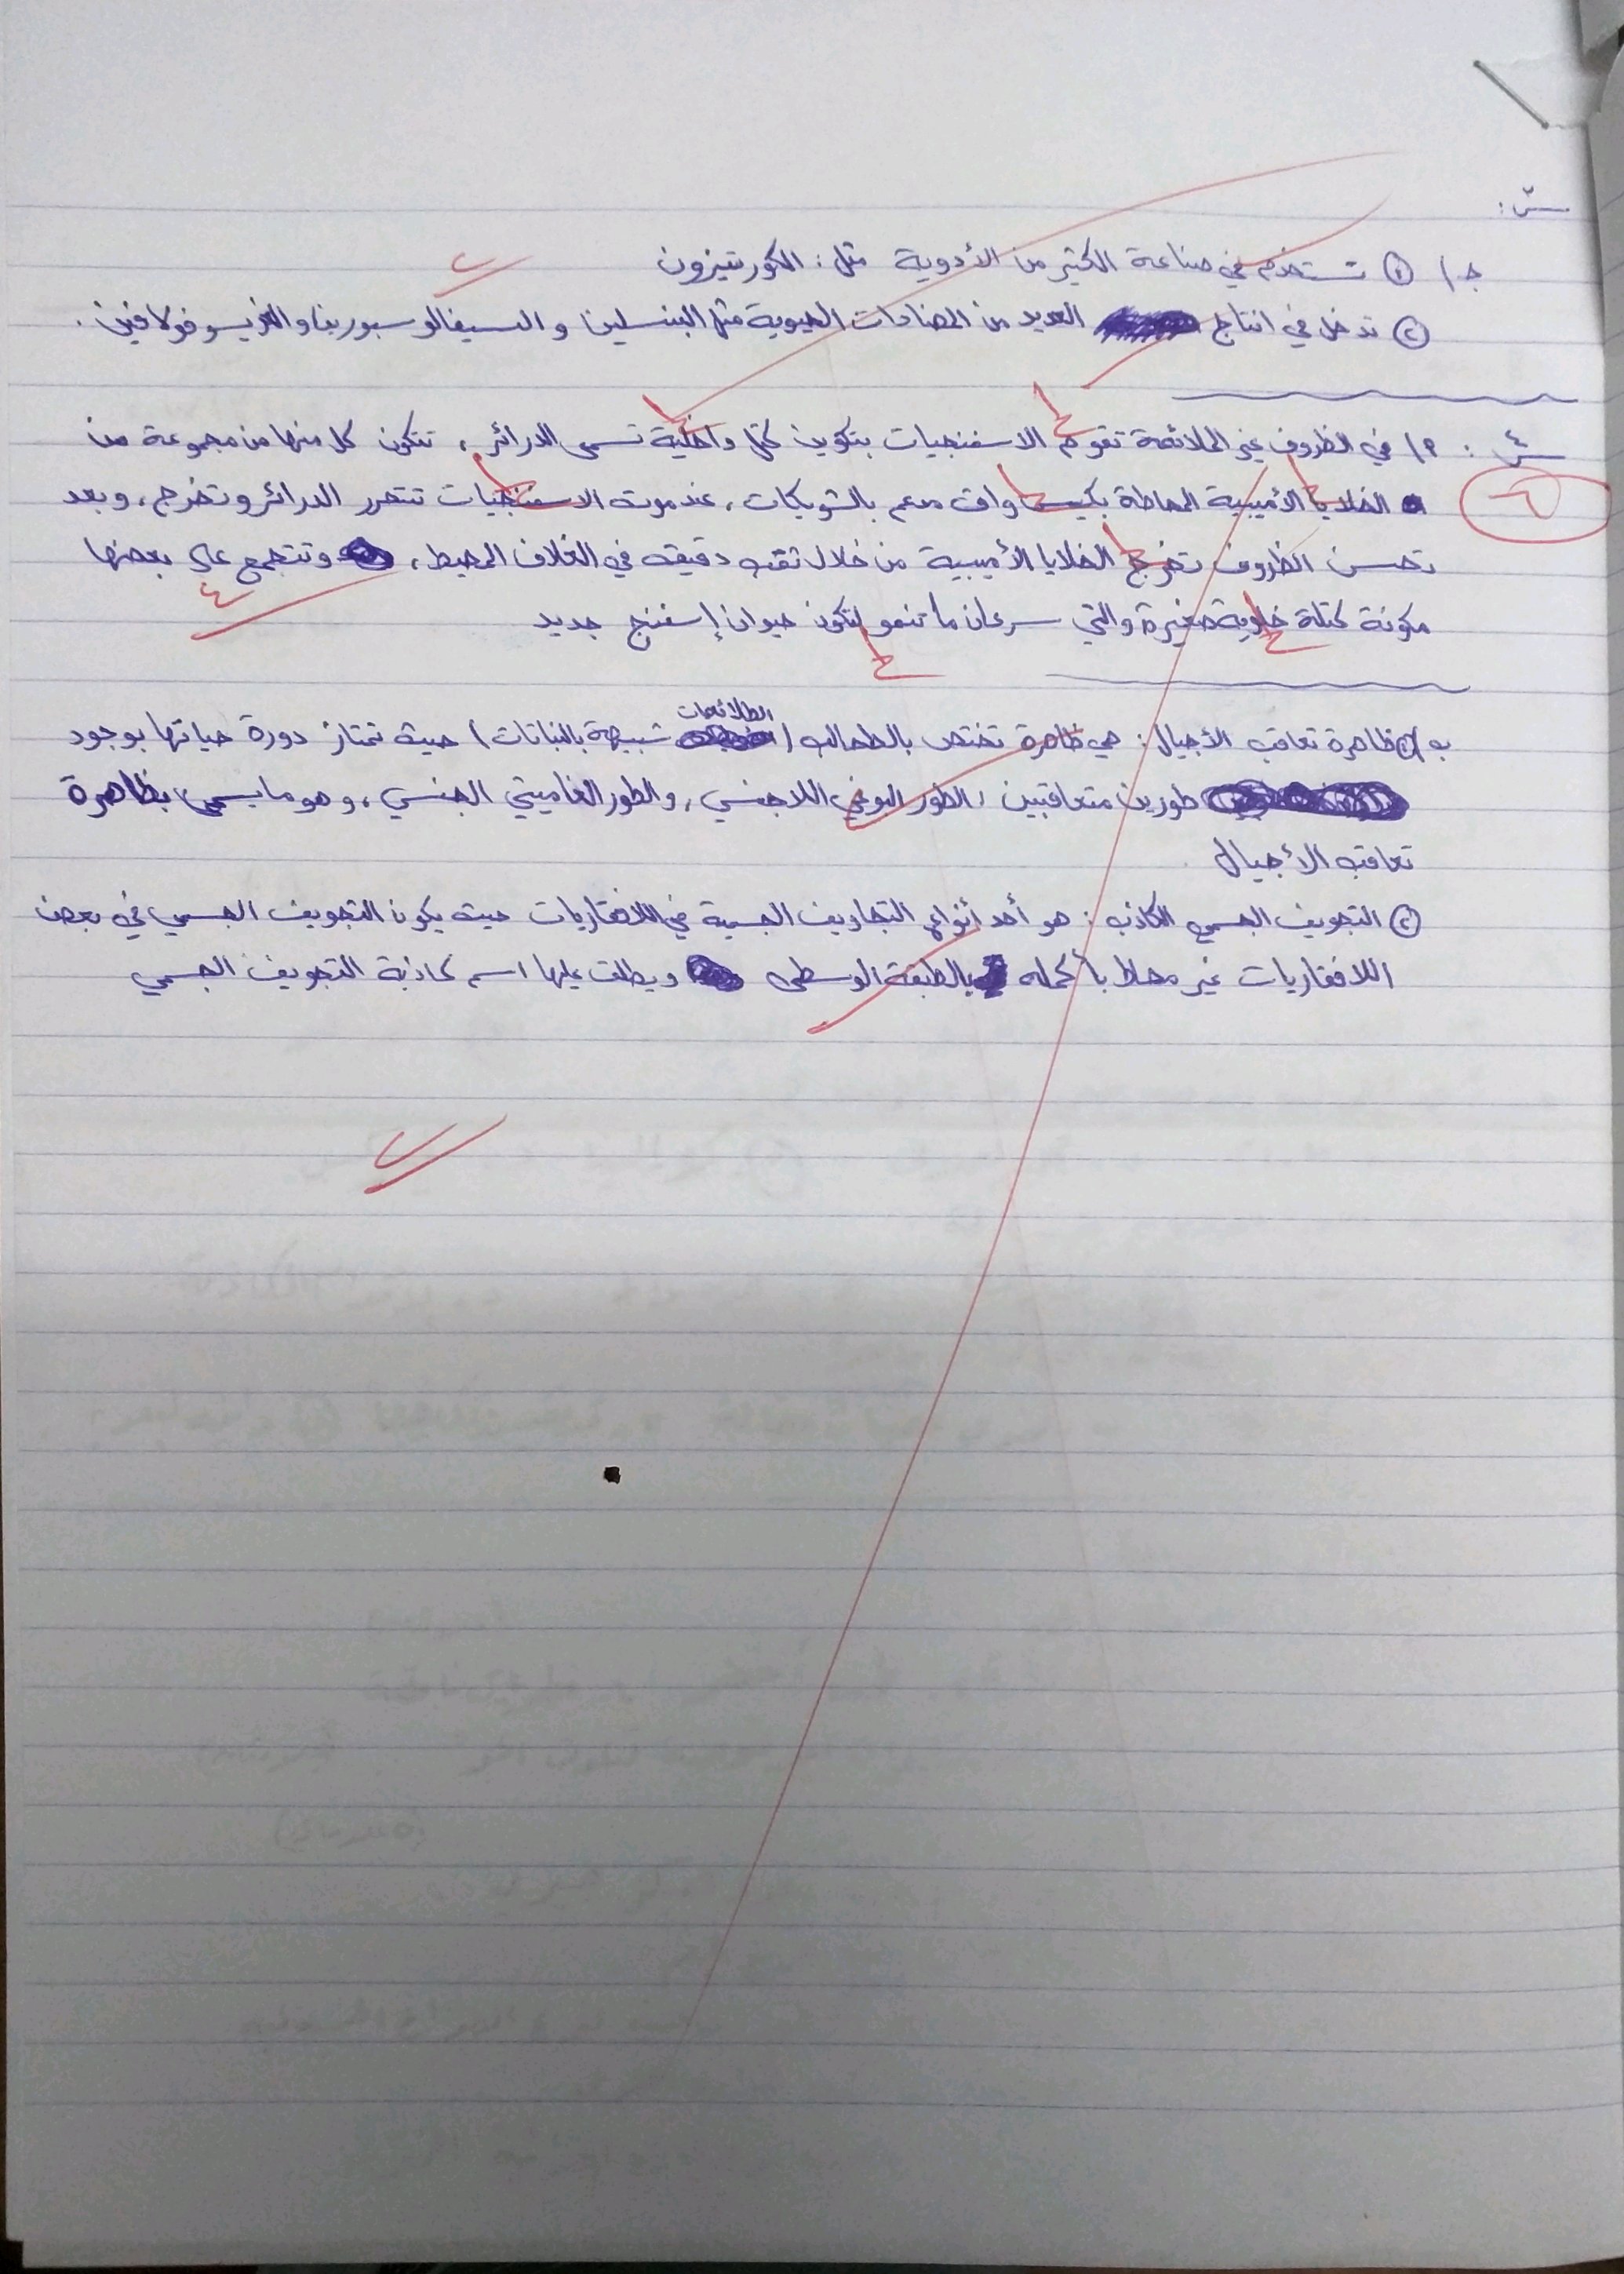 س٣:
جـ/ ① تستخدم في صناعة الكثير من الأدوية مثل: الكورتيزون
٢
② تدخل في انتاج العديد من المضادات الحيوية مثل البنسلين و السيفالوسبورينا و الغريسوفولافين.
س٤: أ/ في الظروف غير الملائمة تقوم الاسفنجيات بتكوين كتل داخلية تسمى الدرائر، تتكون كل منها من مجموعة من
٦
الخلايا الأميبية المحاطة بكيس واق مدعم بالشويكات، عند موت الاسفنجيات تتحرر الدرائر وتخرج، وبعد
تحسن الظروف تخرج الخلايا الأميبية من خلال ثقب دقيقه في الغلاف المحيط، وتتجمع على بعضها
٤
مكونة كتلة خلوية صغيرة والتي سرعان ما تنمو لتكون حيوان إسفنج جديد
ب/ ① ظاهرة تعاقب الأجيال: هي ظاهرة تختص بالطحالب (الطلائعيات شبيهة بالنباتات) حيث تمتاز دورة حياتها بوجود
طورين متعاقبين، الطور البوغي اللاجنسي، والطور الغاميتي الجنسي، وهو ما يسمى بظاهرة
تعاقب الأجيال
② التجويف الجسمي الكاذب: هو أحد أنواع التجاويف الجسمية في اللافقاريات حيث يكون التجويف الجسمي في بعض
اللافقاريات غير محاط بأكمله بالطبقة الوسطى ويطلق عليها اسم كاذبة التجويف الجسمي
٢